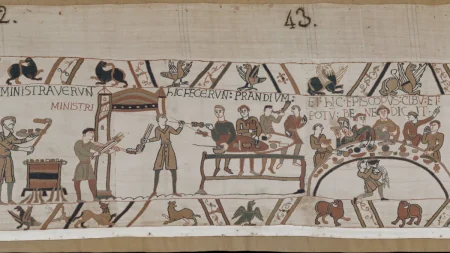 2.
43.
MINISTRAVERVN
MINISTRI
HIC FECERVN: PRANDIVM:
ET HIC EPISCOPVS: CIBV: ET
POTV: BENEDICIT